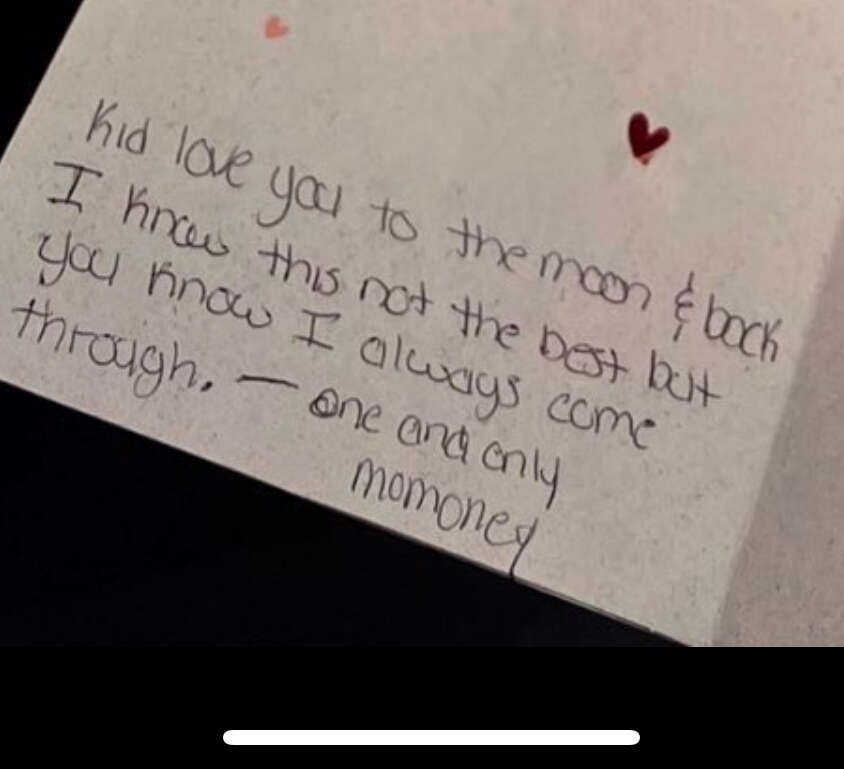 Kid love you to the moon & back
I know this not the best but
you know I always come
through. — one and only
momoney